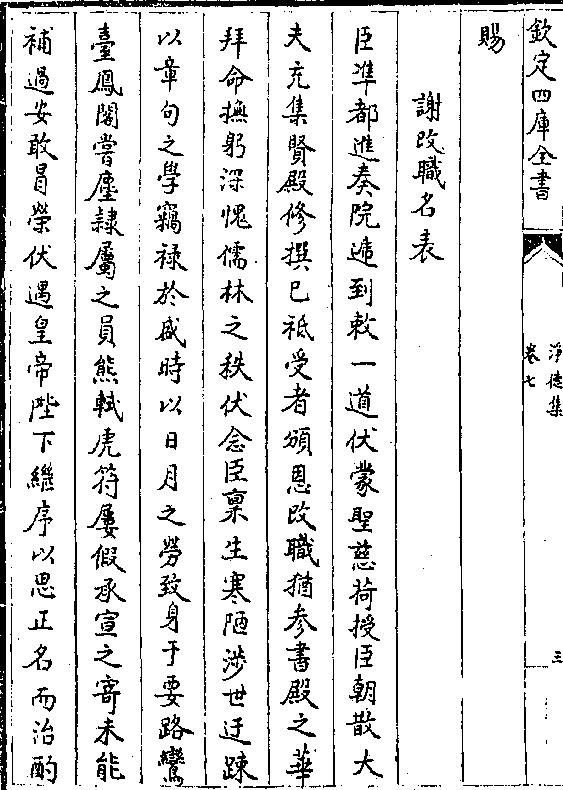 欽定四庫全書
淨德集
卷七
三
賜
謝改職名表
臣準都進奏院逓到敕一道伏蒙聖慈荷授臣朝散大
夫充集賢殿修撰已祗受者頒恩改職猶參書殿之華
拜命撫躬深愧儒林之秩伏念臣稟生寒陋涉世迂踈
以章句之學竊禄於盛時以日月之勞致身于要路鸞
臺鳳閣嘗塵隷屬之員熊軾虎符屢假承宣之寄未能
補過安敢冒榮伏遇皇帝陛下繼序以思正名而治酌